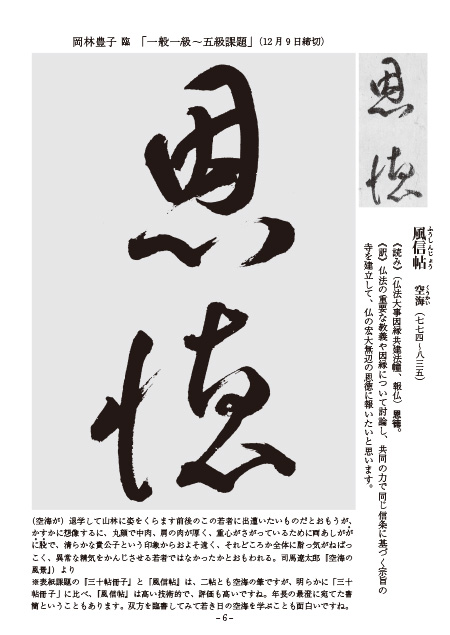 岡林豊子 臨 「一般一級～五級課題」(12月9日締切)
恩徳
恩徳
風信帖 空海(七七四～八三五)
ふうしんじょう くうかい
《読み》(仏法大事因縁共建法幢、報仏)恩徳。
《訳》仏法の重要な教義や因縁について討論し、共同の力で同じ信条に基づく宗旨の
寺を建立して、仏の宏大無辺の恩徳に報いたいと思います。
(空海が)退学して山林に姿をくらます前後のこの若者に出遭いたいものだとおもうが、
かすかに想像するに、丸顔で中肉、肩の肉が厚く、重心がさがっているために両あしががが
に股で、清らかな貴公子という印象からおよそ遠く、それどころか全体に脂っ気がねばっ
こく、異常な精気をかんじさせる若者ではなかったかとおもわれる。司馬遼太郎『空海の
風景』」より
※表紙課題の『三十帖冊子』と『風信帖』は、二帖とも空海の筆ですが、明らかに「三十
帖冊子」に比べ、『風信帖』は高い技術的で、評価も高いですね。年長の最澄に宛てた書
簡ということもあります。双方を臨書してみて若き日の空海を学ぶことも面白いですね。
-6-